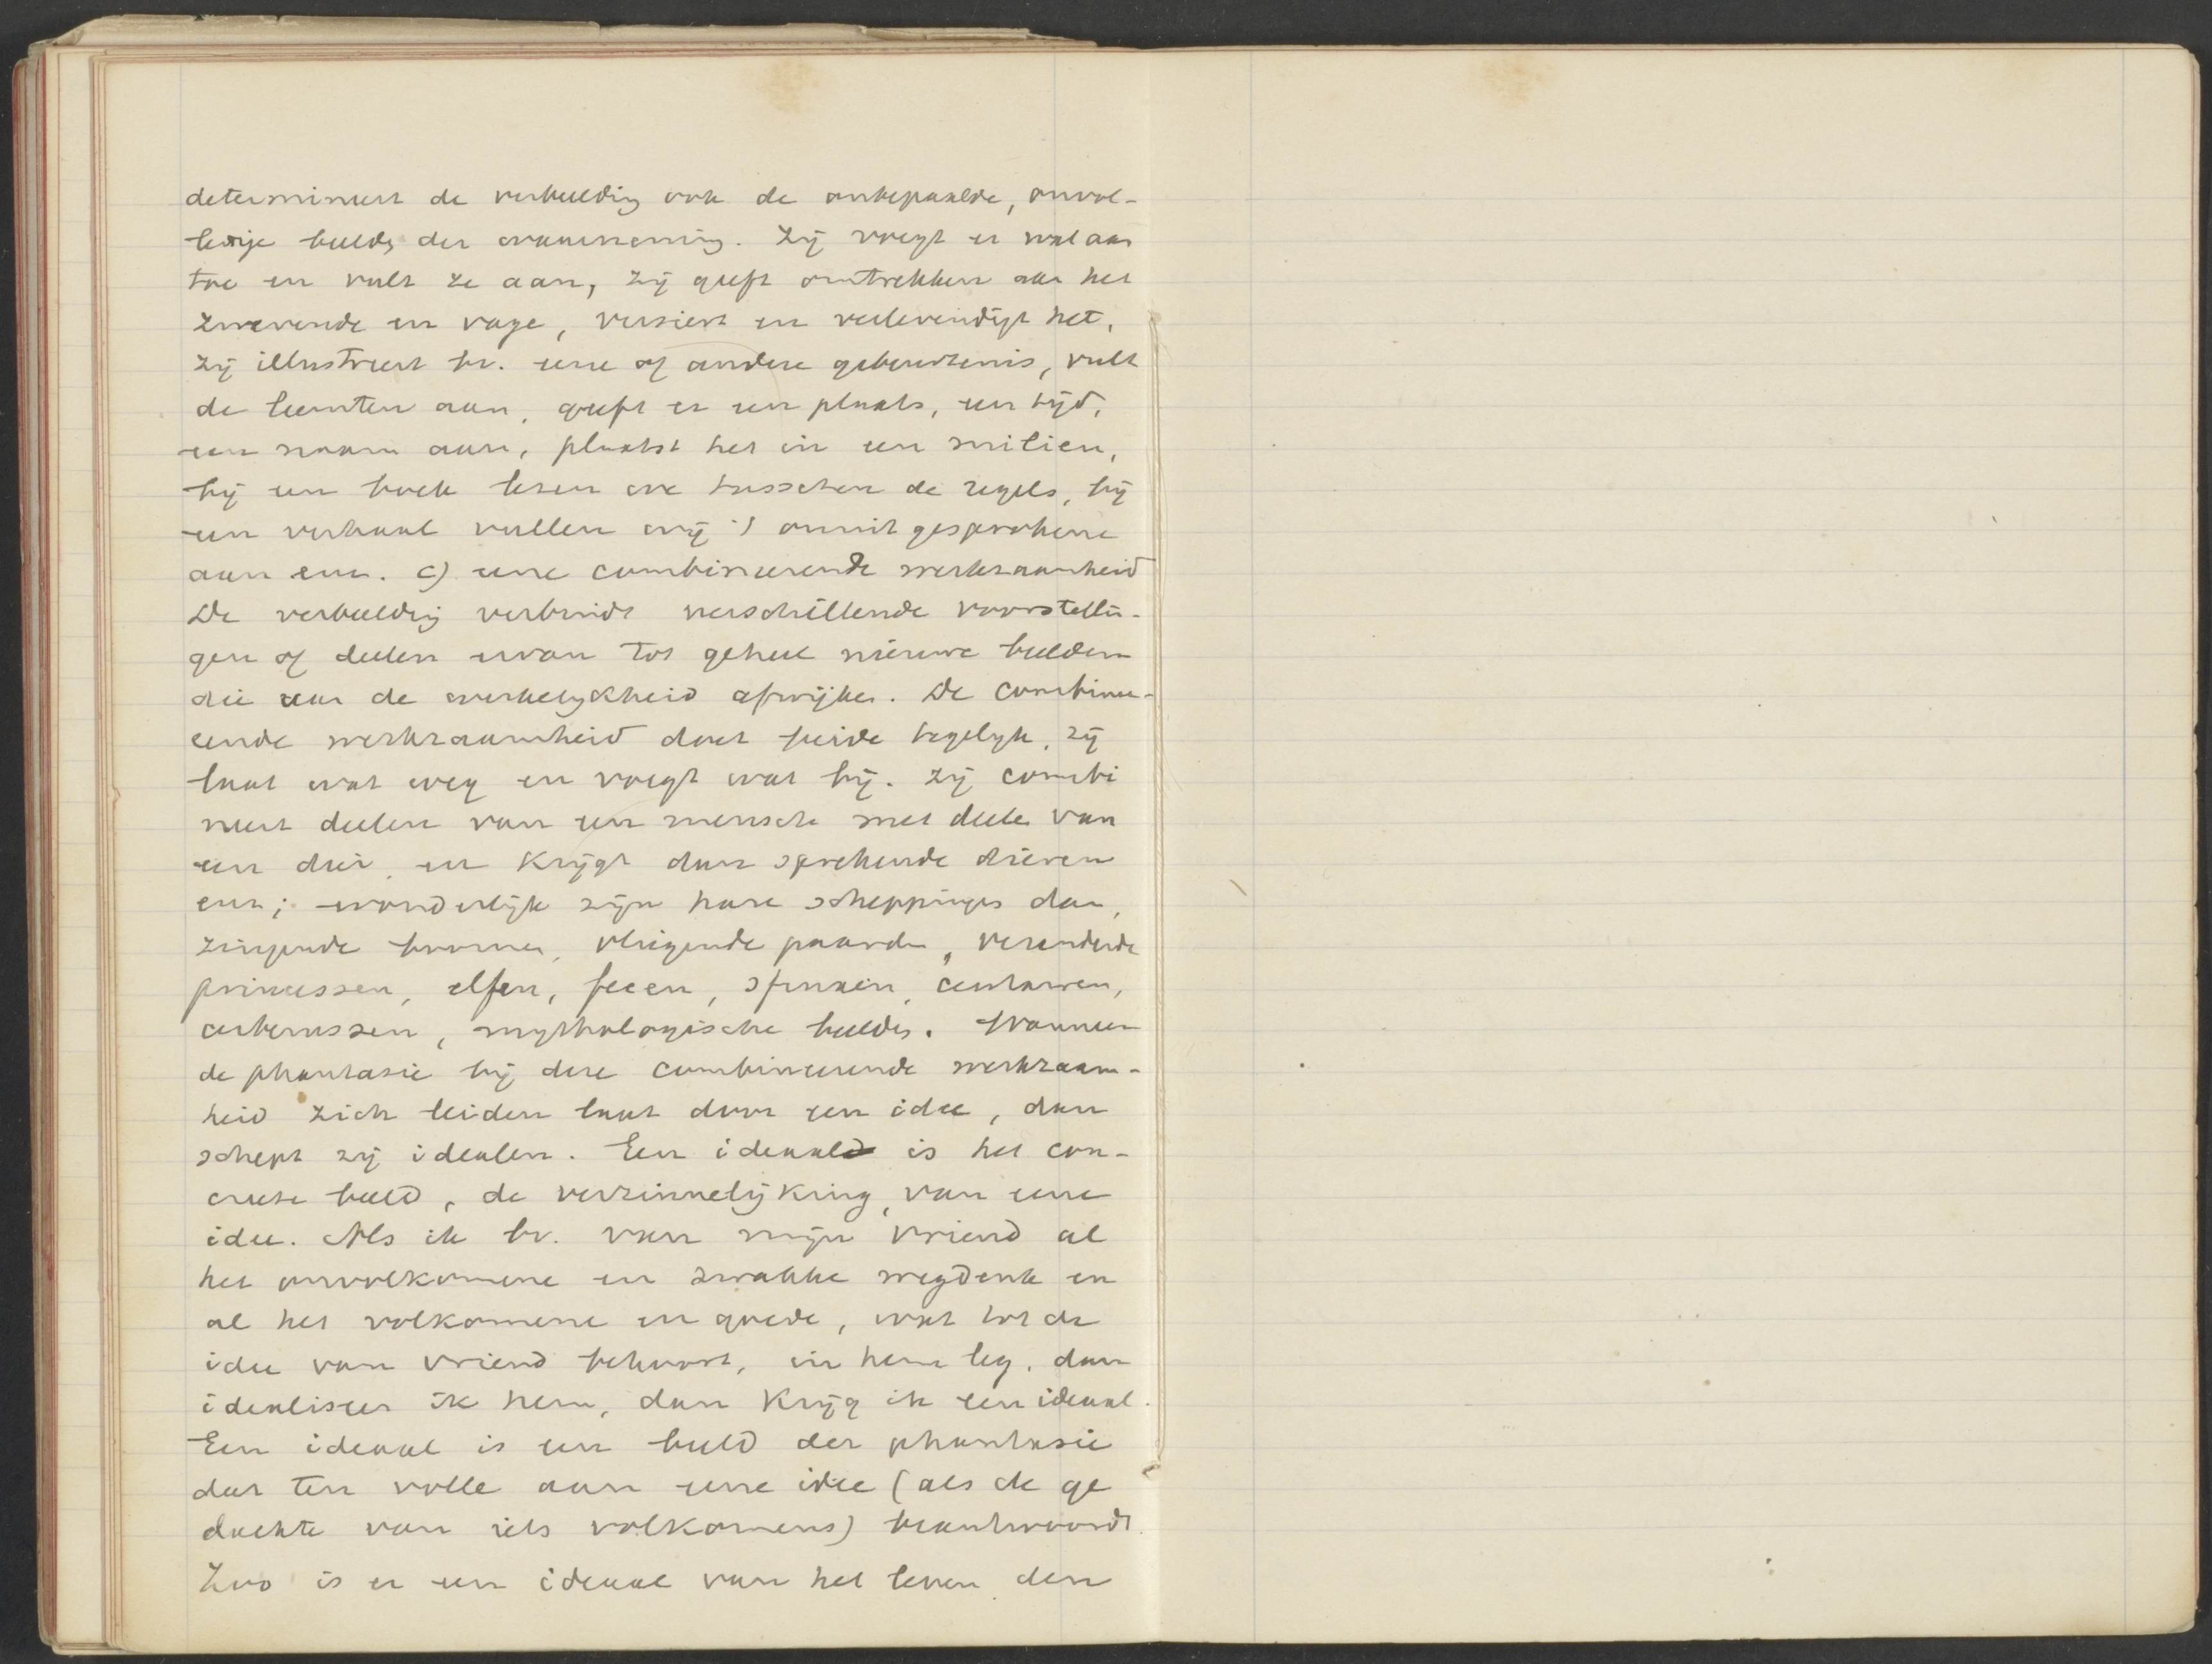 determineert de verbeelding ook de onbepaalde, onvol-
ledige beelde der waarneming. Zij voegt er wat aan
toe en vult ze aan, zij geeft omtrekken aan het
zwevende en vage, versiert en verlevendigt het,
zij illustreert bv. eene of andere gebeurtenis, vult
de leemten aan, geeft er een plaats, een tijd,
een naam aan, plaatst het in een milieu,
bij een boek lezen we tusschen de regels, bij
een verhaal vullen wij 't onuit gesprokene
aan enz. c) eene combineerende werkzaamheid
De verbeeldig verbindt verschillende voorstellin-
gen of deelen ervan tot geheel nieuwe beelden
die van de werkelijkheid afwijken. De combinee-
eende werkzaamheid doet beide tegelijk, zij
laat wat weg en voegt wat bij. Zij combi
neert deelen van een mensch met deelen van
een dier, en krijgt dan sprekende dieren
enz; wonderlijk zijn hare scheppinges dan,
zingende boomen, vliegende paarden, veranderde
prinsessen, elfen, feeen, sfinxen, centauren,
cerberussen, mythologische beelden. Wanneer
de phantasie bij deze combineerende werkzaam-
heid zich leiden laat door een idee, dan
schept zij idealen. Een ideaal is het con-
creete beeld, de verzinnelijking, van eene
idee. Als ik bv. van mijn vriend al
het onvolkomene en zwakke wegdenk en
al het volkomene en goede, wat tot de
idee van vriend behoort, in hem leg, dan
idealiseer ik hem, dan krijg ik een ideaal.
Een ideaal is een beeld der phantasie
dat ten volle aan eene idee (als de ge
dachte van iets volkomens) beantwoordt.
Zoo is er een ideaal van het leven, den